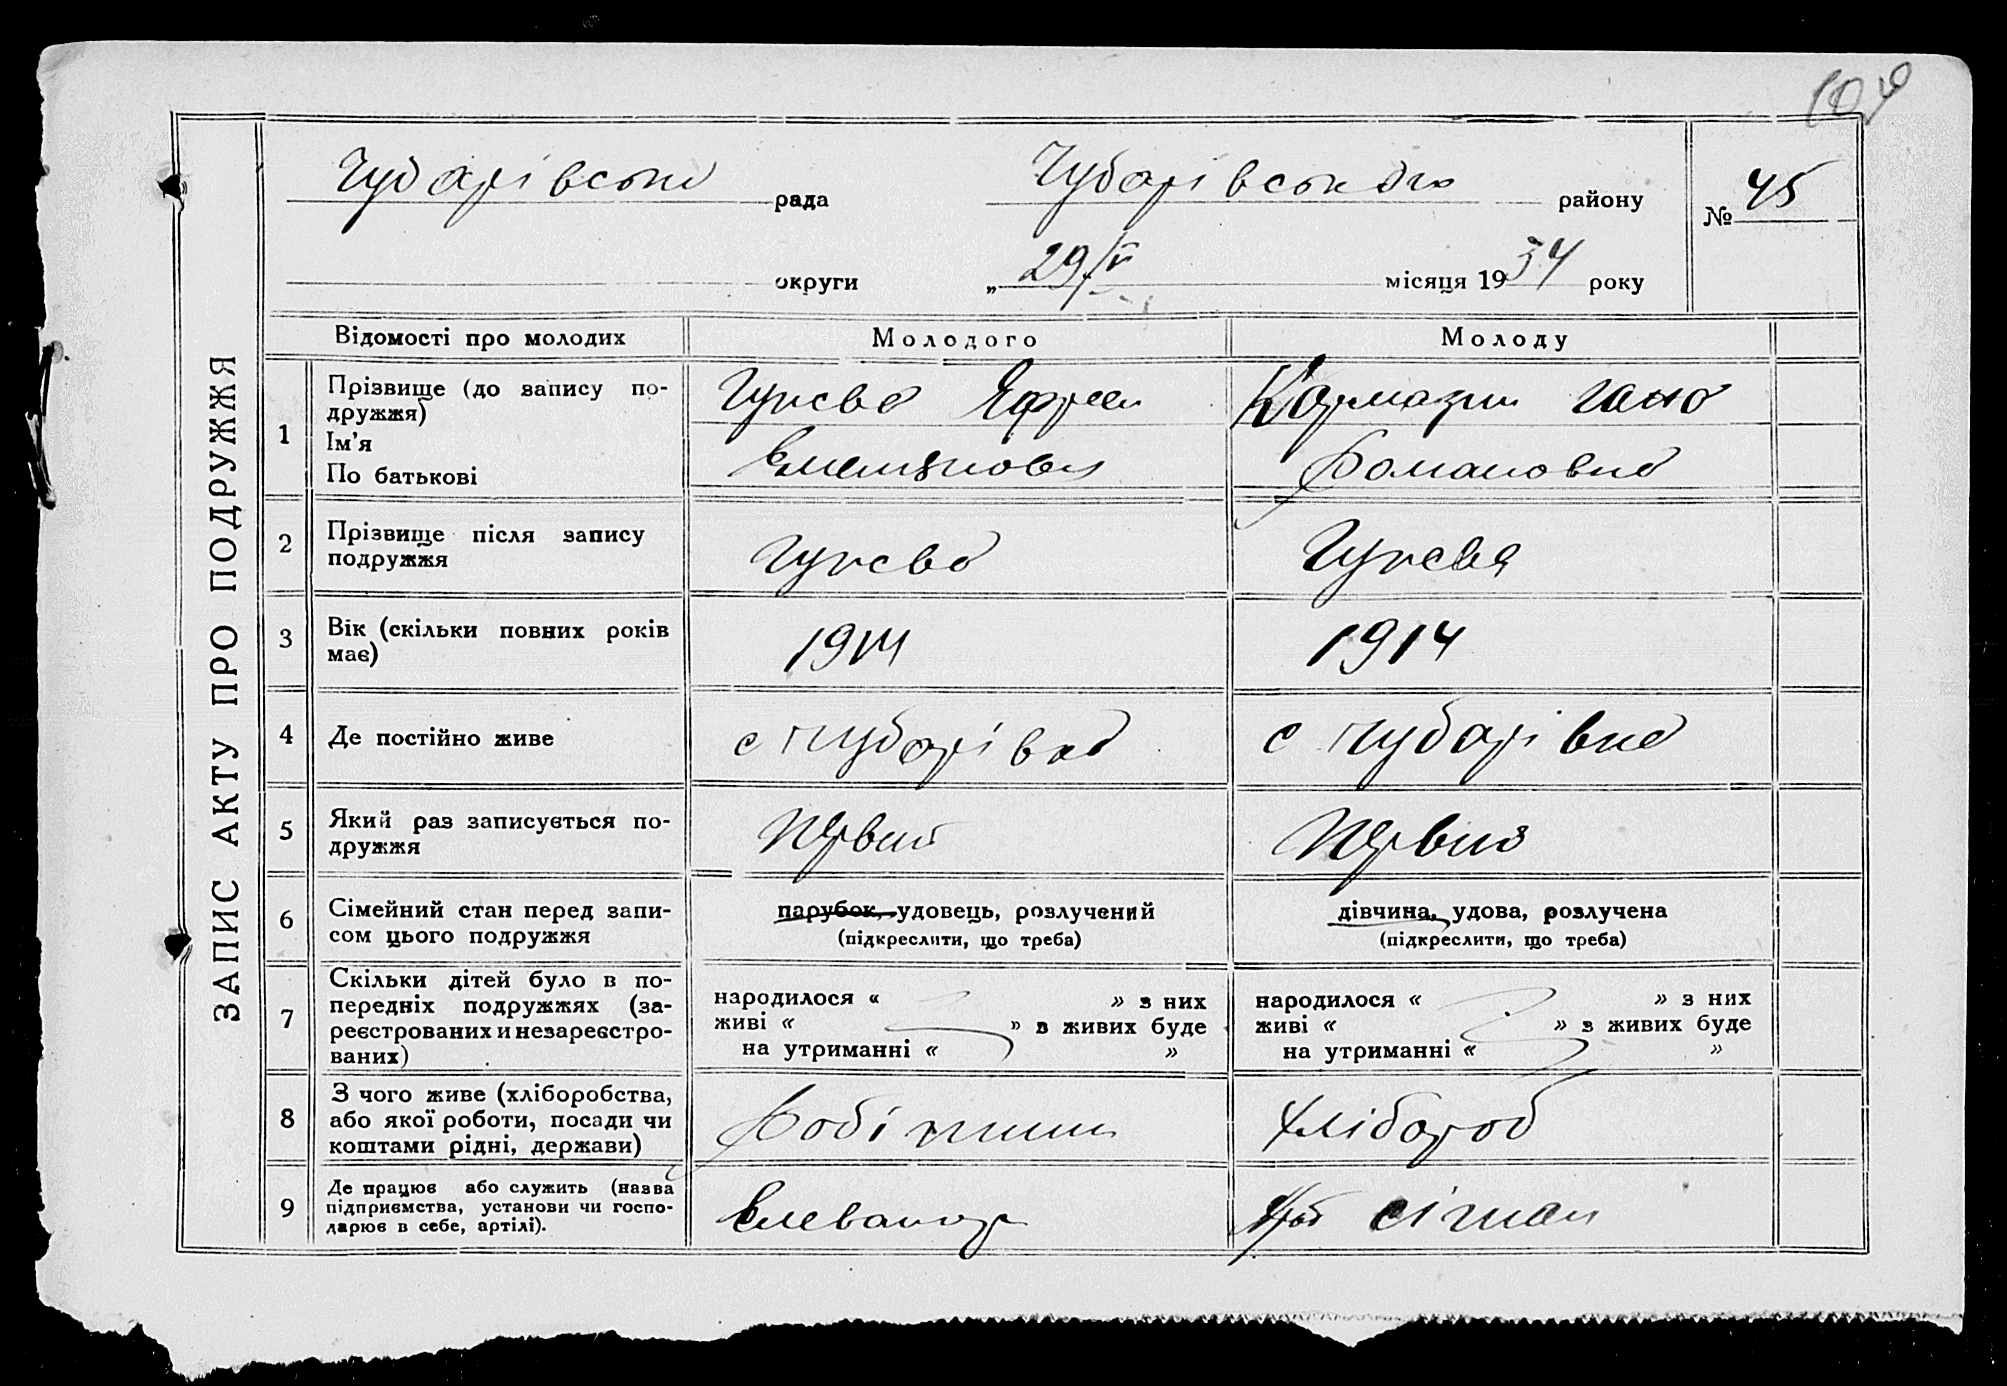 Чубарівська рада Чубарівського району № 45
округи „ 29/IV місяця 1934 року
ЗАПИС АКТУ ПРО ПОДРУЖЖЯ
Відомості про молодих Молодого Молоду
1 Прізвище (до запису по-
дружжя)
Ім'я
По батькові
Кармазин Гана
Романовна
2 Прізвище після запису
подружжя
3 Вік (скільки повних років
має)
1914 1914
4 Де постійно живе с Чубарівка с Чубарівка
5 Який раз записується по-
дружжя
Первий Первиз
6 Сімейний стан перед запи-
сом цього подружжя
парубок, удовець, розлучений
(підкреслити, що треба)
дівчина, удова, розлучена
(підкреслити, що треба)
7 Скільки дітей було в по-
передніх подружжях (за-
реєстрованих и незареєстро-
ваних)
народилося « » з них
живі « » з живих буде
на утриманні « »
народилося « » з них
живі « » з живих буде
на утриманні « »
8 З чого живе (хліборобства,
або якої роботи, посади чи
коштами рідні, держави)
Робітник Хлібороб
9 Де працює або служить (назва
підприємства, установи чи госпо-
дарює в себе, артілі).
Елеватор